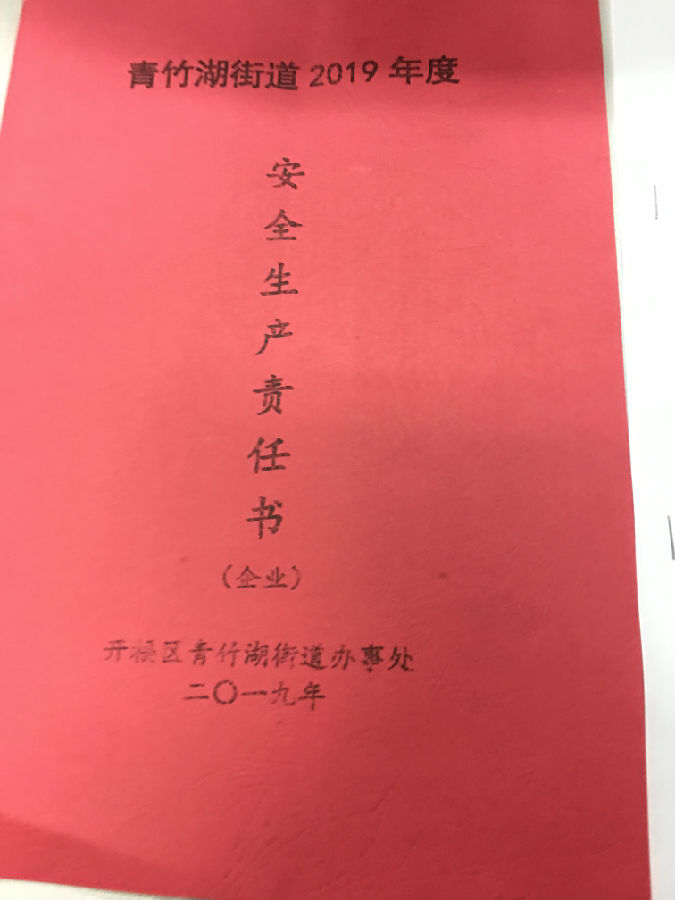 青竹湖街道 2019 年度
安全生产责任书
（企业）
开福区青竹湖街道办事处
二〇一九年